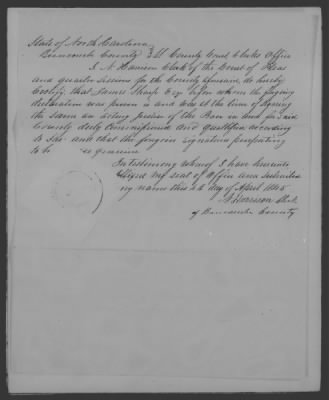 State of North Carolina
Buncombe County } County Court Clerks Office
I N Harrison Clerk of the Court of Pleas
and quarter sessions for the County aforesaid, do hereby
Certify, that James Sharp Esq before whom the forgoing
declaration was proven is and was at the time of signing
the same an acting justice of the Peace in and for said
County duly Commissioned and Qualified according
to law and that the foregoin signature purporting
to be is genuine
In testimony whereof I have hereunto
affixed my seal of office and subscribed
my name this day of April
N Harrison Clk
of Buncombe County